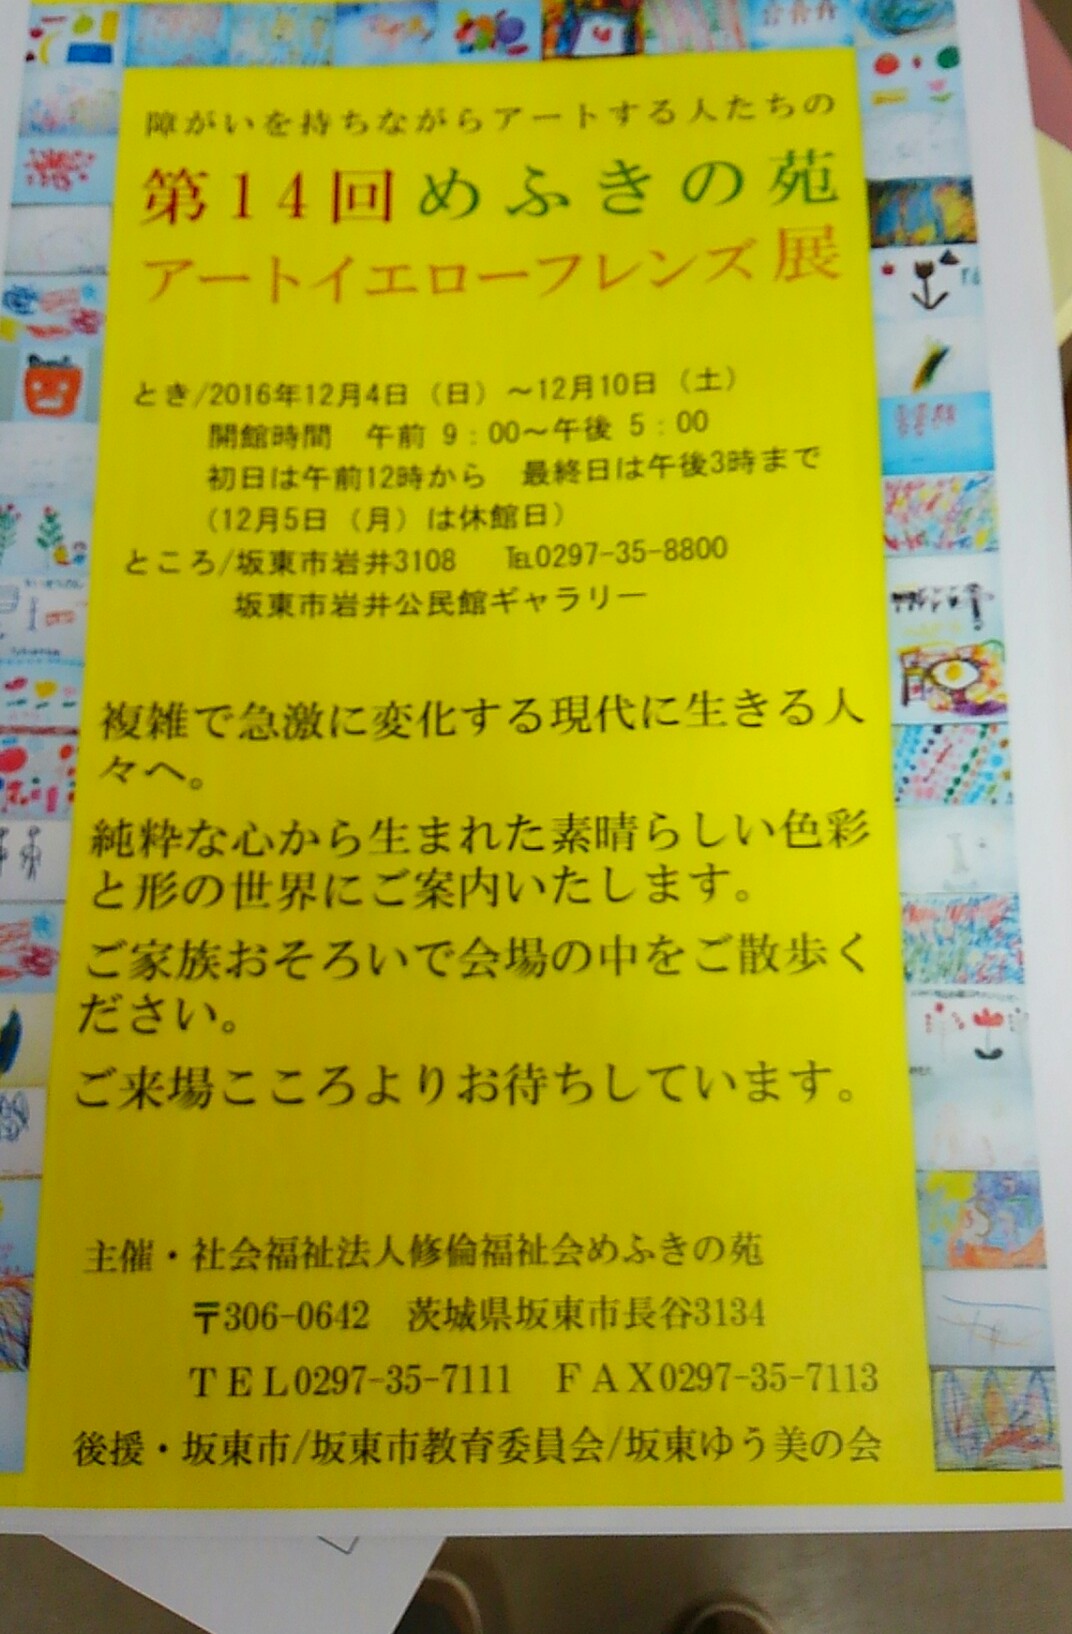 障がいを持ちながらアートする人たちの
第14回めふきの苑
アートイエローフレンズ展
とき/2016年12月4日（日）～12月10日（土）
開館時間　午前 9：00～午後 5：00
初日は午前12時から　最終日は午後3時まで
（12月5日（月）は休館日）
ところ/坂東市岩井3108　℡0297-35-8800
坂東市岩井公民館ギャラリー
複雑で急激に変化する現代に生きる人
々へ。
純粋な心から生まれた素晴らしい色彩
と形の世界にご案内いたします。
ご家族おそろいで会場の中をご散歩く
ださい。
ご来場こころよりお待ちしています。
主催・社会福祉法人修倫福祉会めふきの苑
〒306-0642　茨城県坂東市長谷3134
ＴＥＬ0297-35-7111　ＦＡＸ0297-35-7113
後援・坂東市/坂東市教育委員会/坂東ゆう美の会